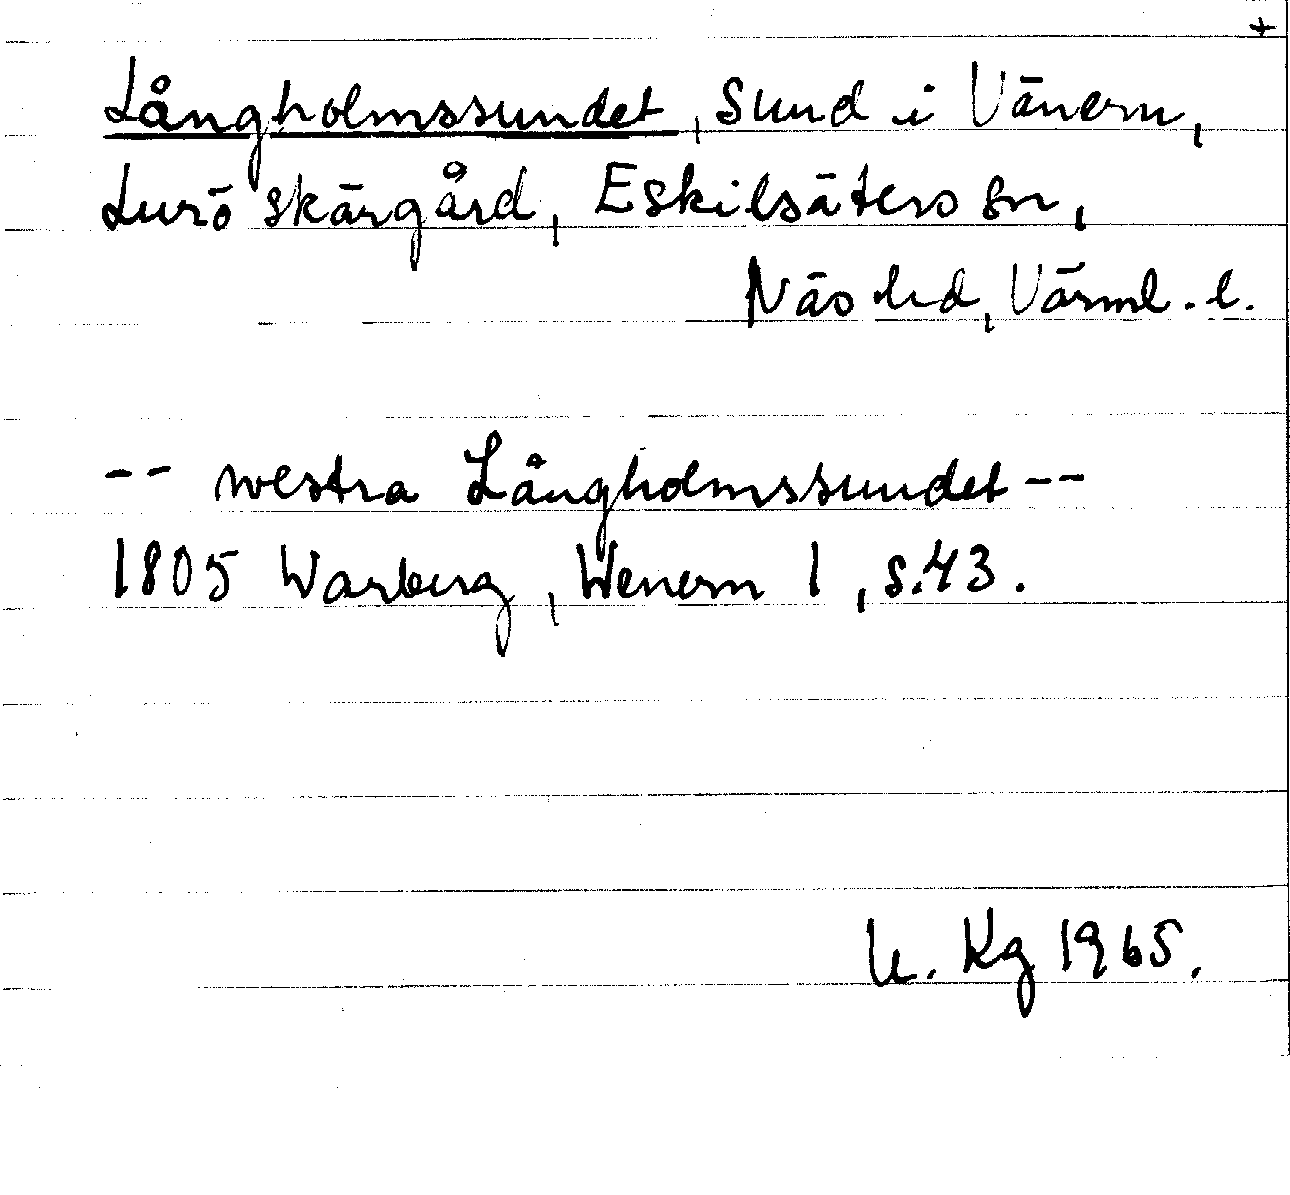 +
Långholmssundet, Sund i Vänern,
Lurö skärgård, Eskilsäters sn,
Näs hd, Värml. l.
-- westra Långholmssundet --
1805 Warberg, Wenern 1, s.43.
U. Kg 1965.